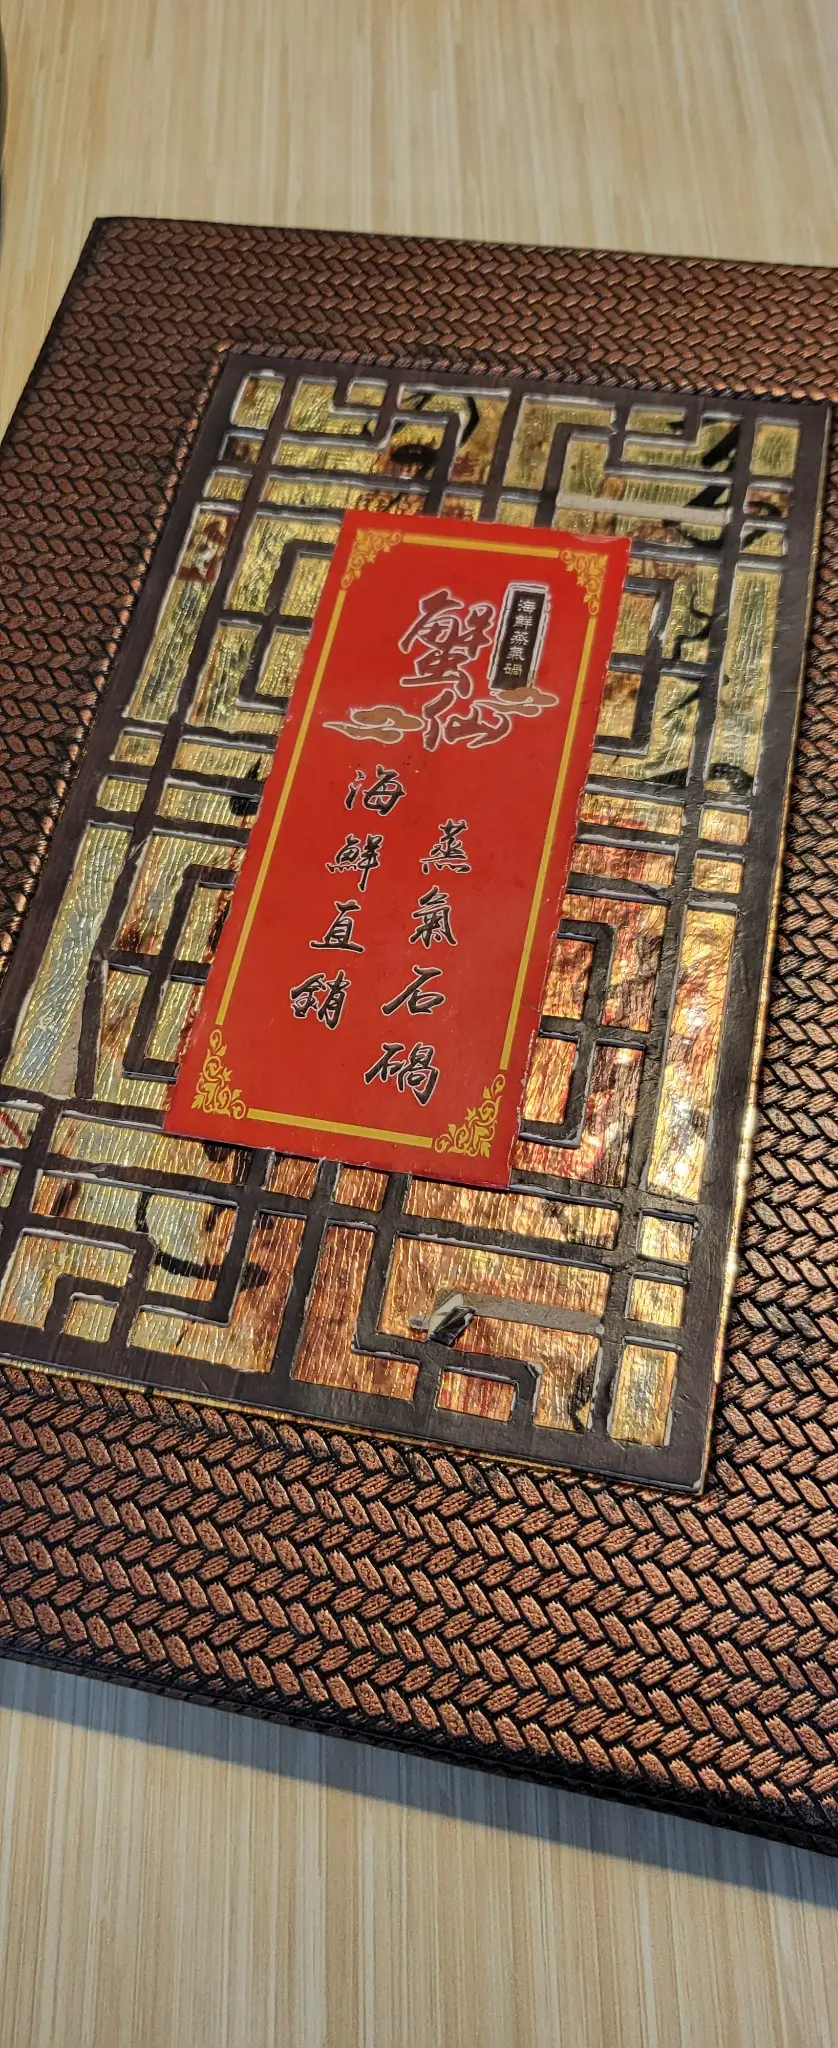 蟹仙
海鮮蒸氣鍋
蒸氣石鍋
海鮮直銷